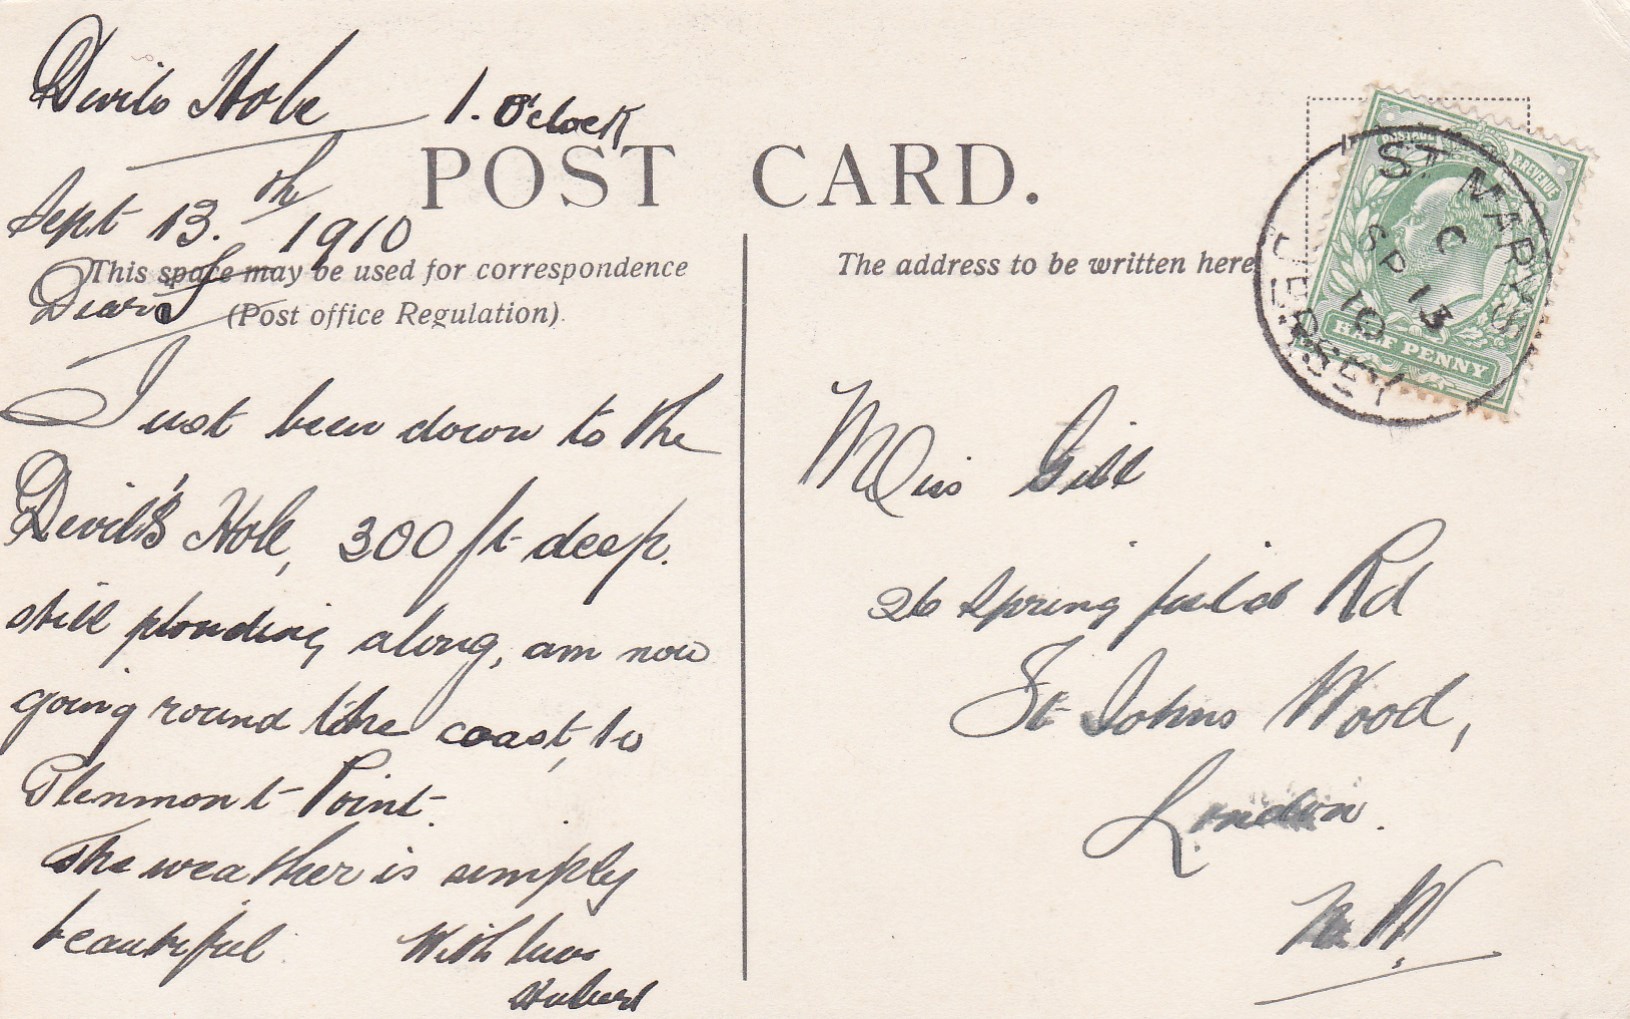 Devils Hole 1. O'clock
POST CARD.
Sept 13.th 1910
This space may be used for correspondence
(Post office Regulation)
The address to be written here
Just been down to the
Devil's Hole, 300 ft deep.
still plonding along, am now
going round the coast, to
Plenmont Point.
The weather is simply
beautiful. With love
Hubert
Miss Gill
26 Springfield Rd
St Johns Wood,
London.
N.W.
ST. MARYS
C
SP 13
10
JERSEY
POSTAGE & REVENUE
HALF PENNY